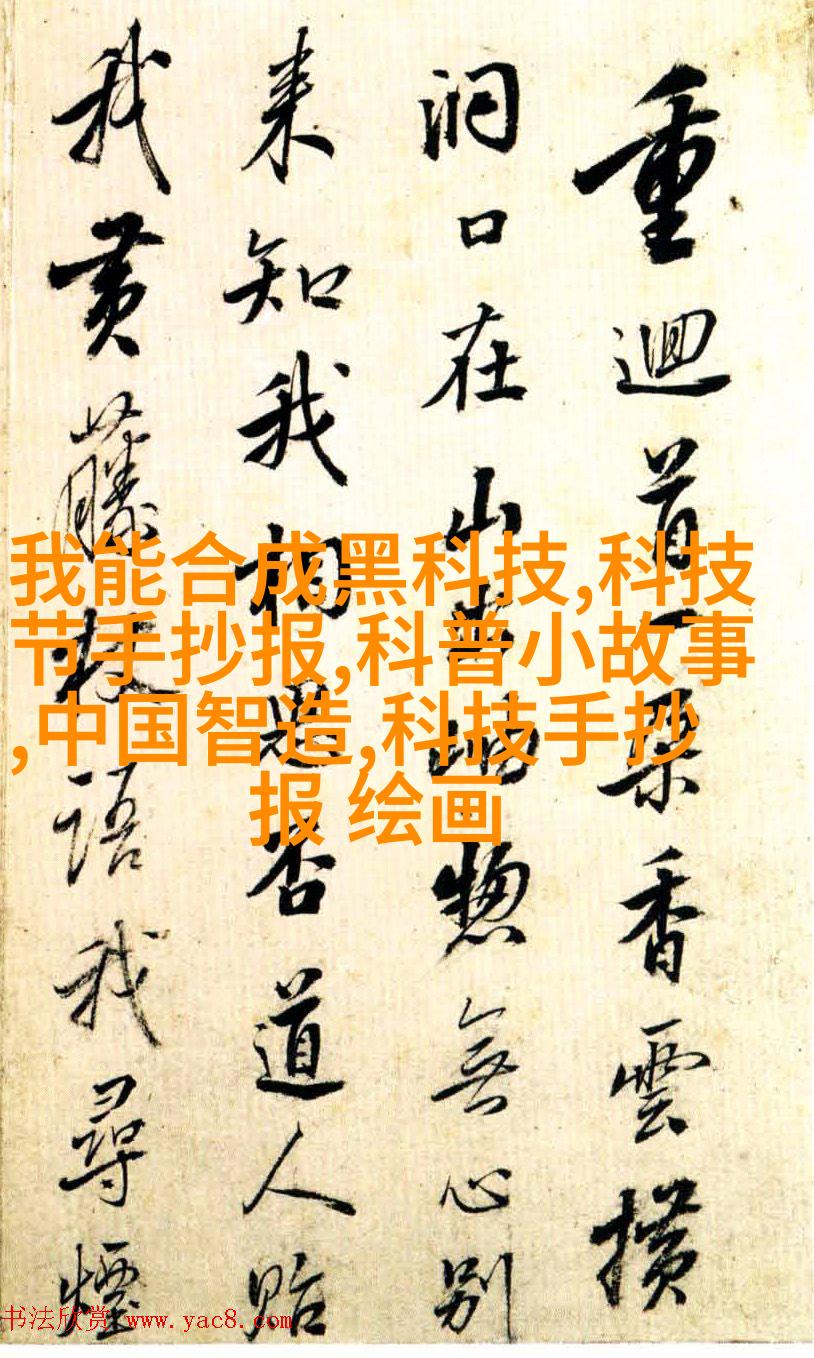 重迴首一香雲橫
洞口在山惣無心別
来知我相思否道人貽
我黄藤杖語我尋煙
我能合成黑科技,科技
节手抄报,科普小故事
,中国智造,科技手抄
报 绘画
书法欣赏 www.yac8.com